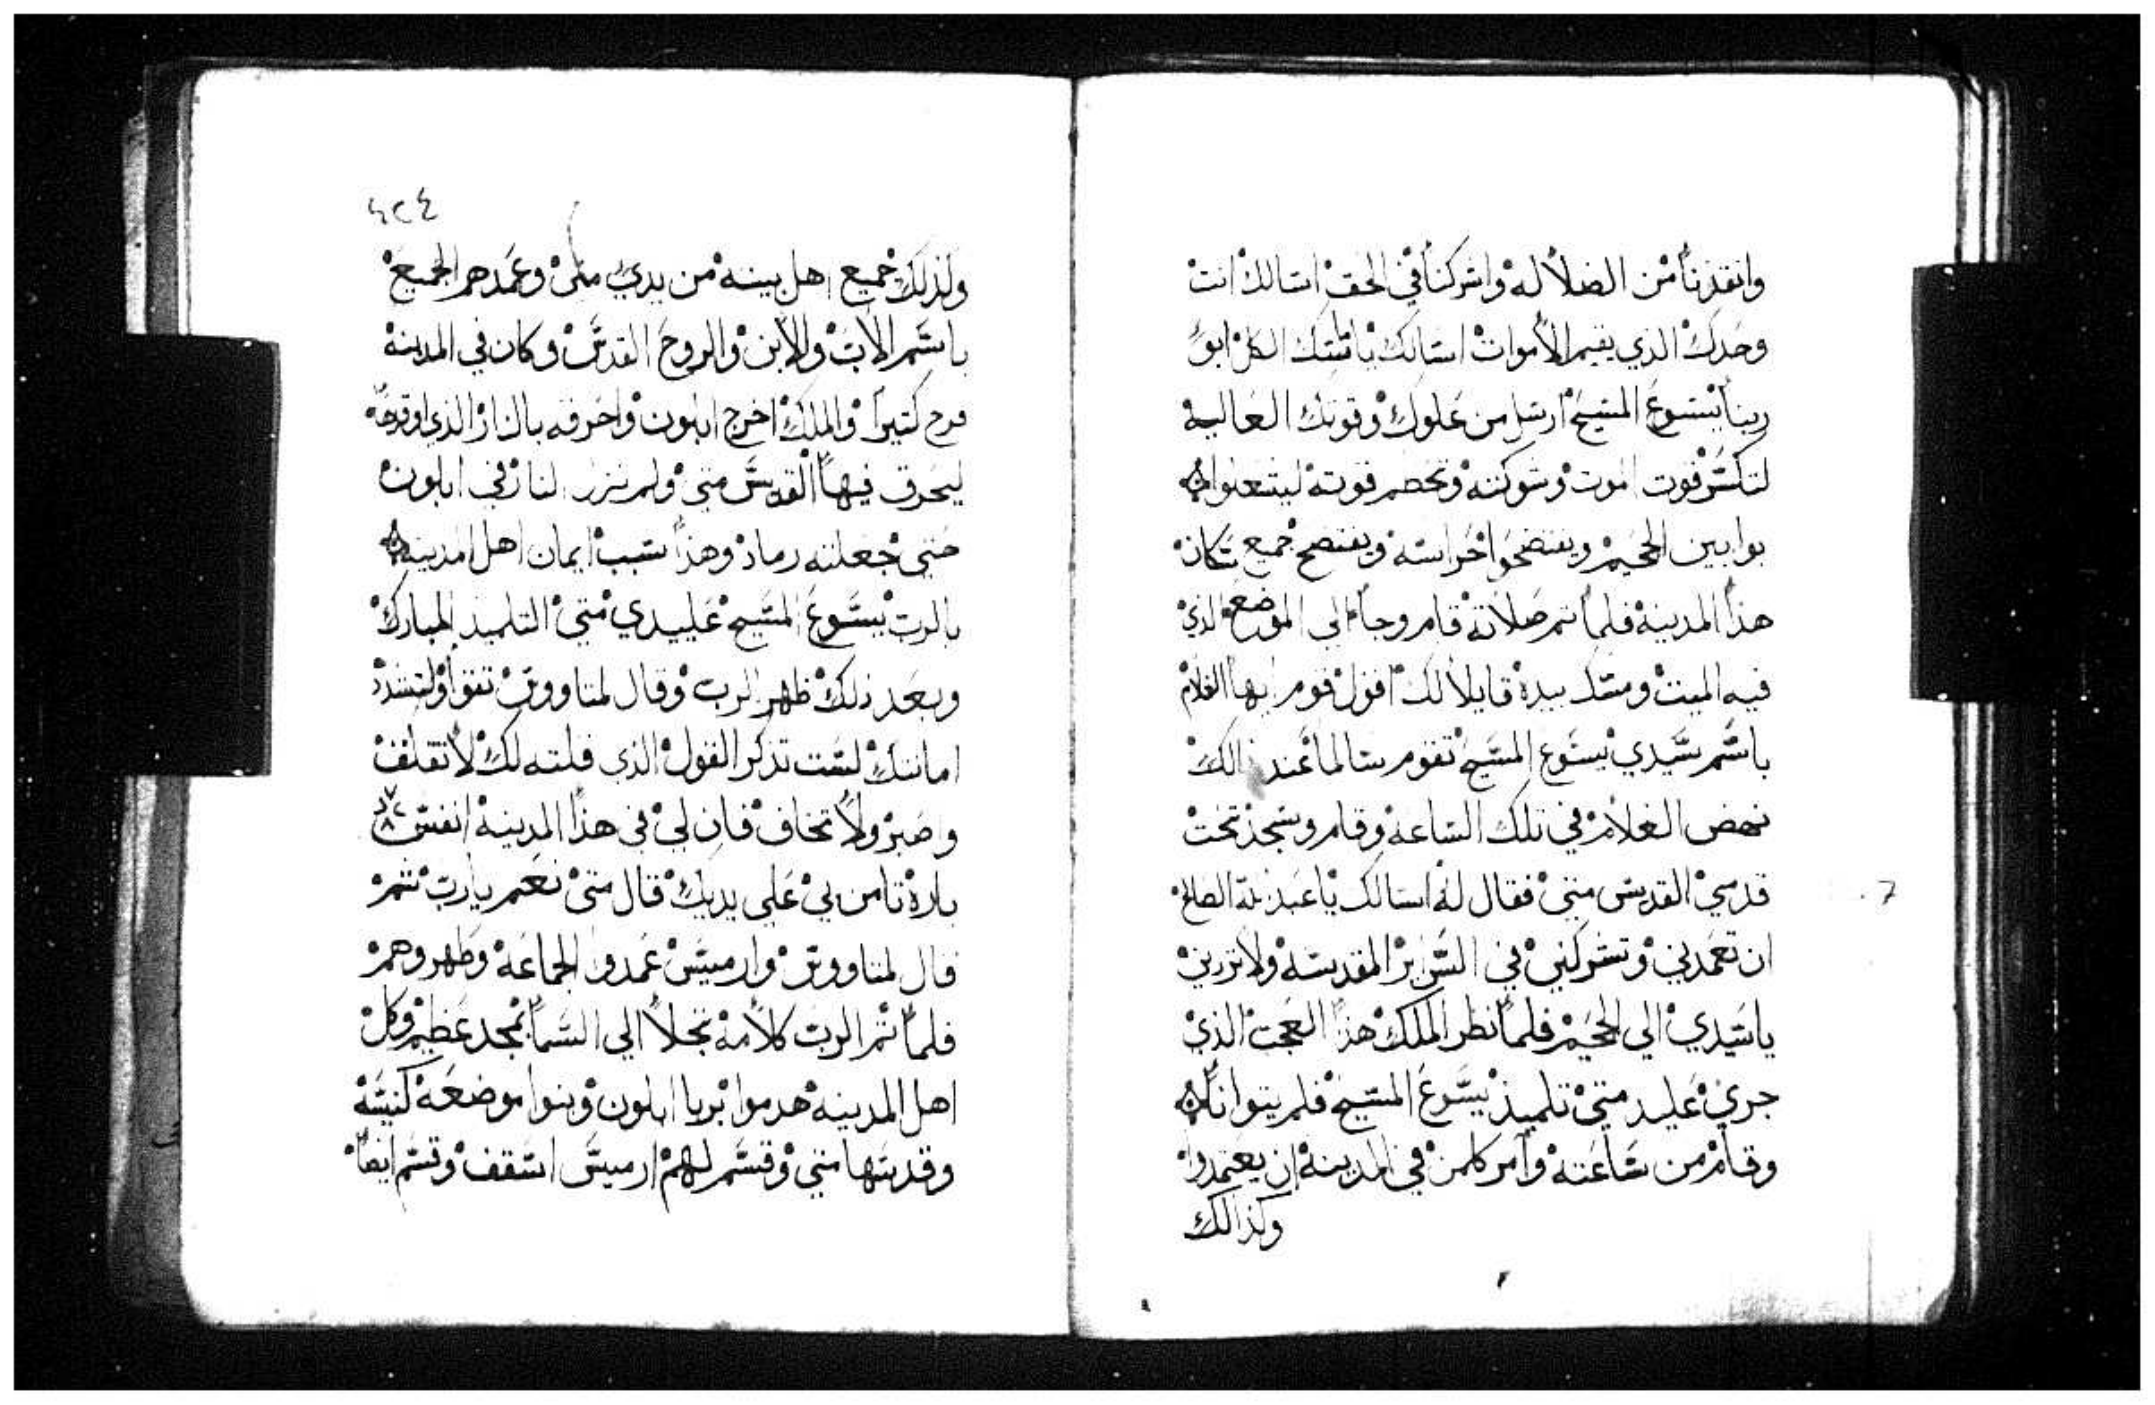 وانقذنا من الضلاله واشركنا في الحق اسالك انت
وحدك الذي يقيم الأموات اسالك يا ماسك الكل ابو
ربنا يسوع المسيح ارسل من علوك وقوتك العاليه
لتكسر قوت الموت وشوكته وتحطم قوته ليتعلوا
بوابين الجحيم ويفتضحوا حراسه ويفتضح جميع سكان
هذا المدينه فلما تم صلاته قام وجا الي الموضع الذي
فيه الميت ومسك بيده قايلا لك اقول قوم ايها الغلام
باسم سيدي يسوع المسيح تقوم سالما عند ذالك
نهض الغلام في تلك الساعه وقام وسجد تحت
قدمي القديس متي فقال له اسالك يا عبد الله الصالح
ان تعمدني وتشركني في السراير المقدسه ولا تردني
يا سيدي الي الجحيم فلما نظر الملك هذا العجب الذي
جري علي يد متي تلميذ يسوع المسيح فلم يتوانا
وقام من ساعته وامر كلمن في المدينه ان يعتمدوا
وكذالك
٤٢٤
ولذلك جميع اهل بيته من يدي متي وعمدهم الجميع
باسم الاب والابن والروح القدس وكان في المدينه
فرح كتيرا والملك اخرج ابلون واحرقه بالنار الذي اوقدها
ليحرق فيها القديس متي ولم تزل النار في ابلون
حتي جعلته رماد وهذا سبب ايمان اهل المدينه
بالرب يسوع المسيح علي يدي متي التلميذ المبارك
وبعد ذلك ظهر الرب وقال لمتاووس تقوا ولتشدد
امانتك لست تذكر القول الذي قلته لك لا تقلق
واصبر ولا تخاف فان لي في هذا المدينه انفس
باره تامن بي علي يديك قال متي نعم يارب تم
قال لمتاووس وارميس عمدوا الجماعه وطهروهم
فلما تم الرب كلامه تجلا الي السما بمجد عظيم وكل
اهل المدينه هدموا بربا ابلون وبنوا موضعه كنيسه
وقدسها متي وقسم لهم ارميس اسقف وقسم ايضا